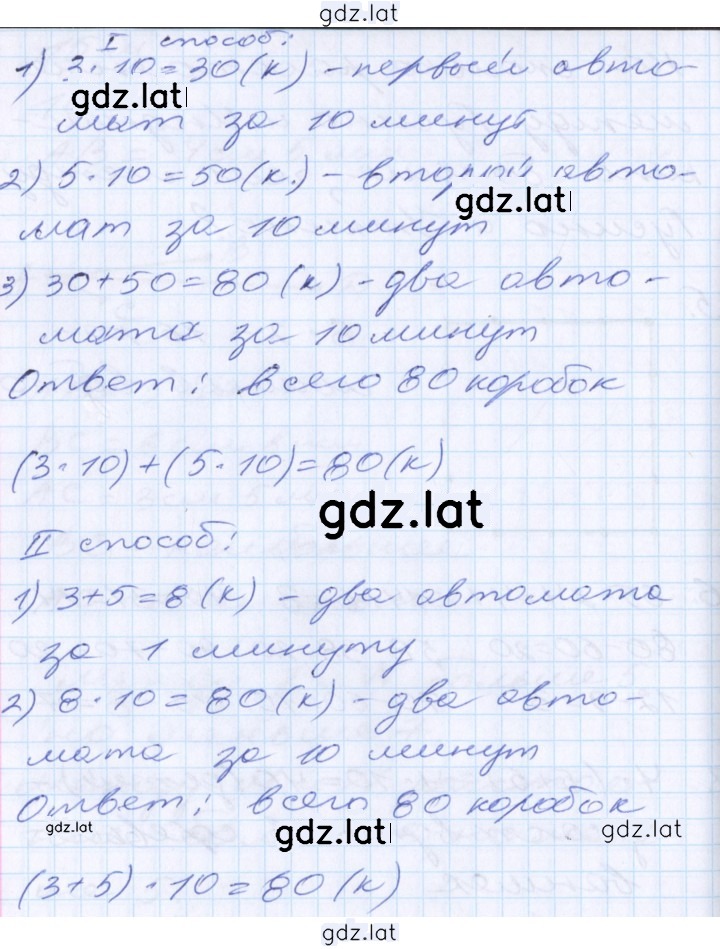 gdz.lat
I способ:
1) 3·10=30(к) - первый авто-
gdz.lat
мат за 10 минут
2) 5·10=50(к.) - второй авто-
gdz.lat
мат за 10 минут
3) 30+50=80(к) - два авто-
мата за 10 минут
Ответ: всего 80 коробок
(3·10)+(5·10)=80(к)
gdz.lat
II способ:
1) 3+5=8(к) - два автомата
за 1 минуту
2) 8·10=80(к) - два авто-
мата за 10 минут
Ответ: всего 80 коробок
gdz.lat gdz.lat gdz.lat
(3+5)·10=80(к)
gdz.lat